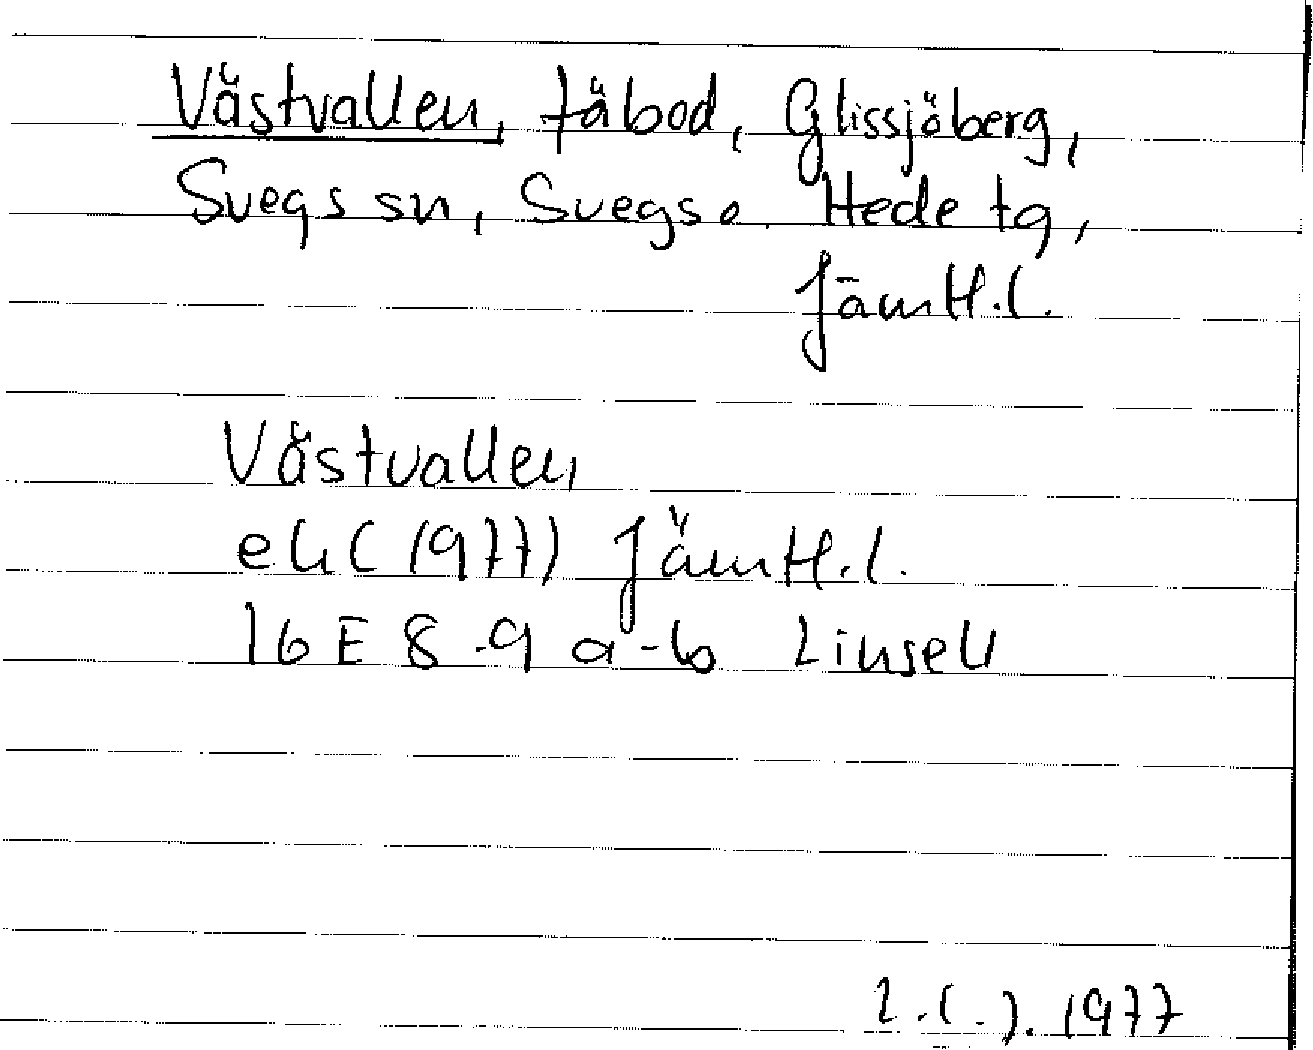 Västvallen, fäbod, Glissjöberg,
Svegs sn, Svegs o. Hede tg,
Jämtl.l.
Västvallen
ek (1977) Jämtl.l.
16E 8-9 a-b Linsell
1977